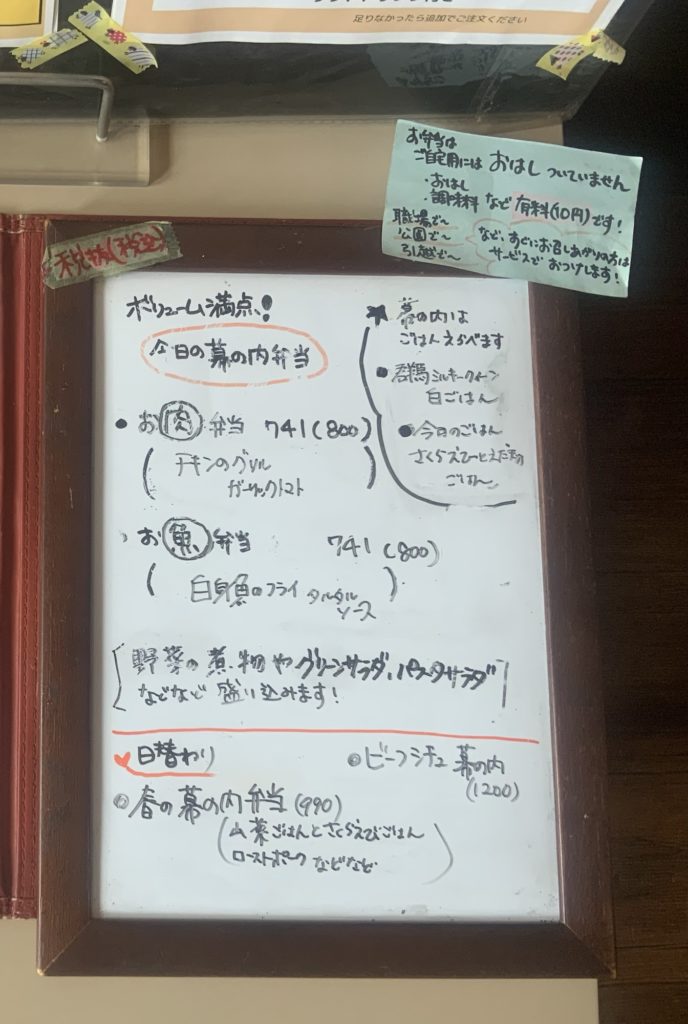 足りなかったら追加でご注文ください
お弁当は
ご自宅用には おはし ついていません
・おはし
・調味料 など 有料(10円)です!
職場で〜
公園で〜
引越で〜
など、すぐにお召しあがりの方は
サービスで おつけします!
税抜(税込)
ボリューム満点、!
今日の幕の内弁当
★ 幕の内は
ごはんえらべます
● 群馬ミルキークイーン
白ごはん
● 今日のごはん
さくらえびとえだ豆の
ごはん
● お肉弁当 741(800)
(チキンのグリル
ガーリックトマト)
・お魚弁当 741(800)
(白身魚のフライ タルタル
ソース)
野菜の煮物やグリーンサラダ、パスタサラダ
などなど 盛り込みます!
♥日替わり
◎ビーフシチュ 幕の内
(1200)
◎春の幕の内弁当(990)
(山菜ごはんとさくらえびごはん
ローストポーク などなど)